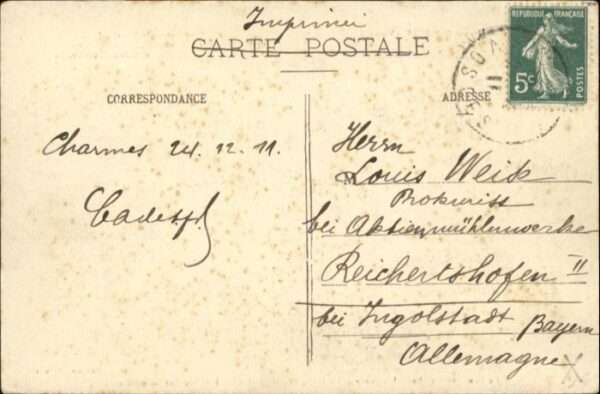 Imprimé
CARTE POSTALE
RÉPUBLIQUE FRANÇAISE
5c
POSTES
CORRESPONDANCE
ADRESSE
Charmes 24. 12. 11.
Herrn
Louis Weik
Prokurist
bei Aktienmühlenwerke
Reichertshofen II
bei Ingolstadt Bayern
Allemagne